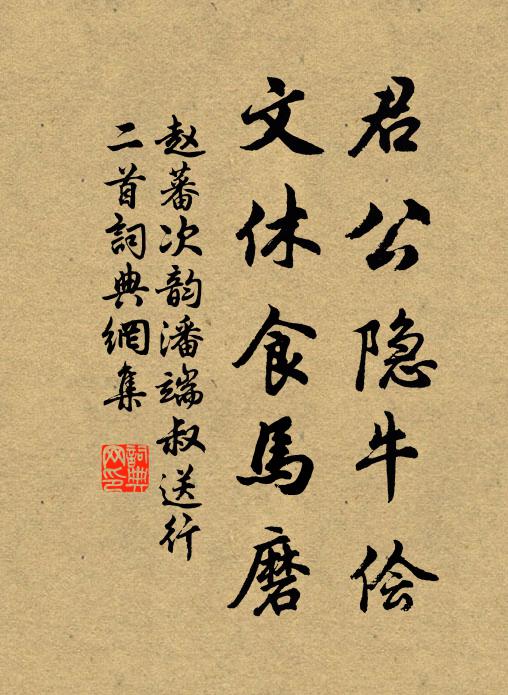 君公隐牛侩
文休食馬磨
赵蕃次韵潘端叔送行
二首詞典網集
詞典网印